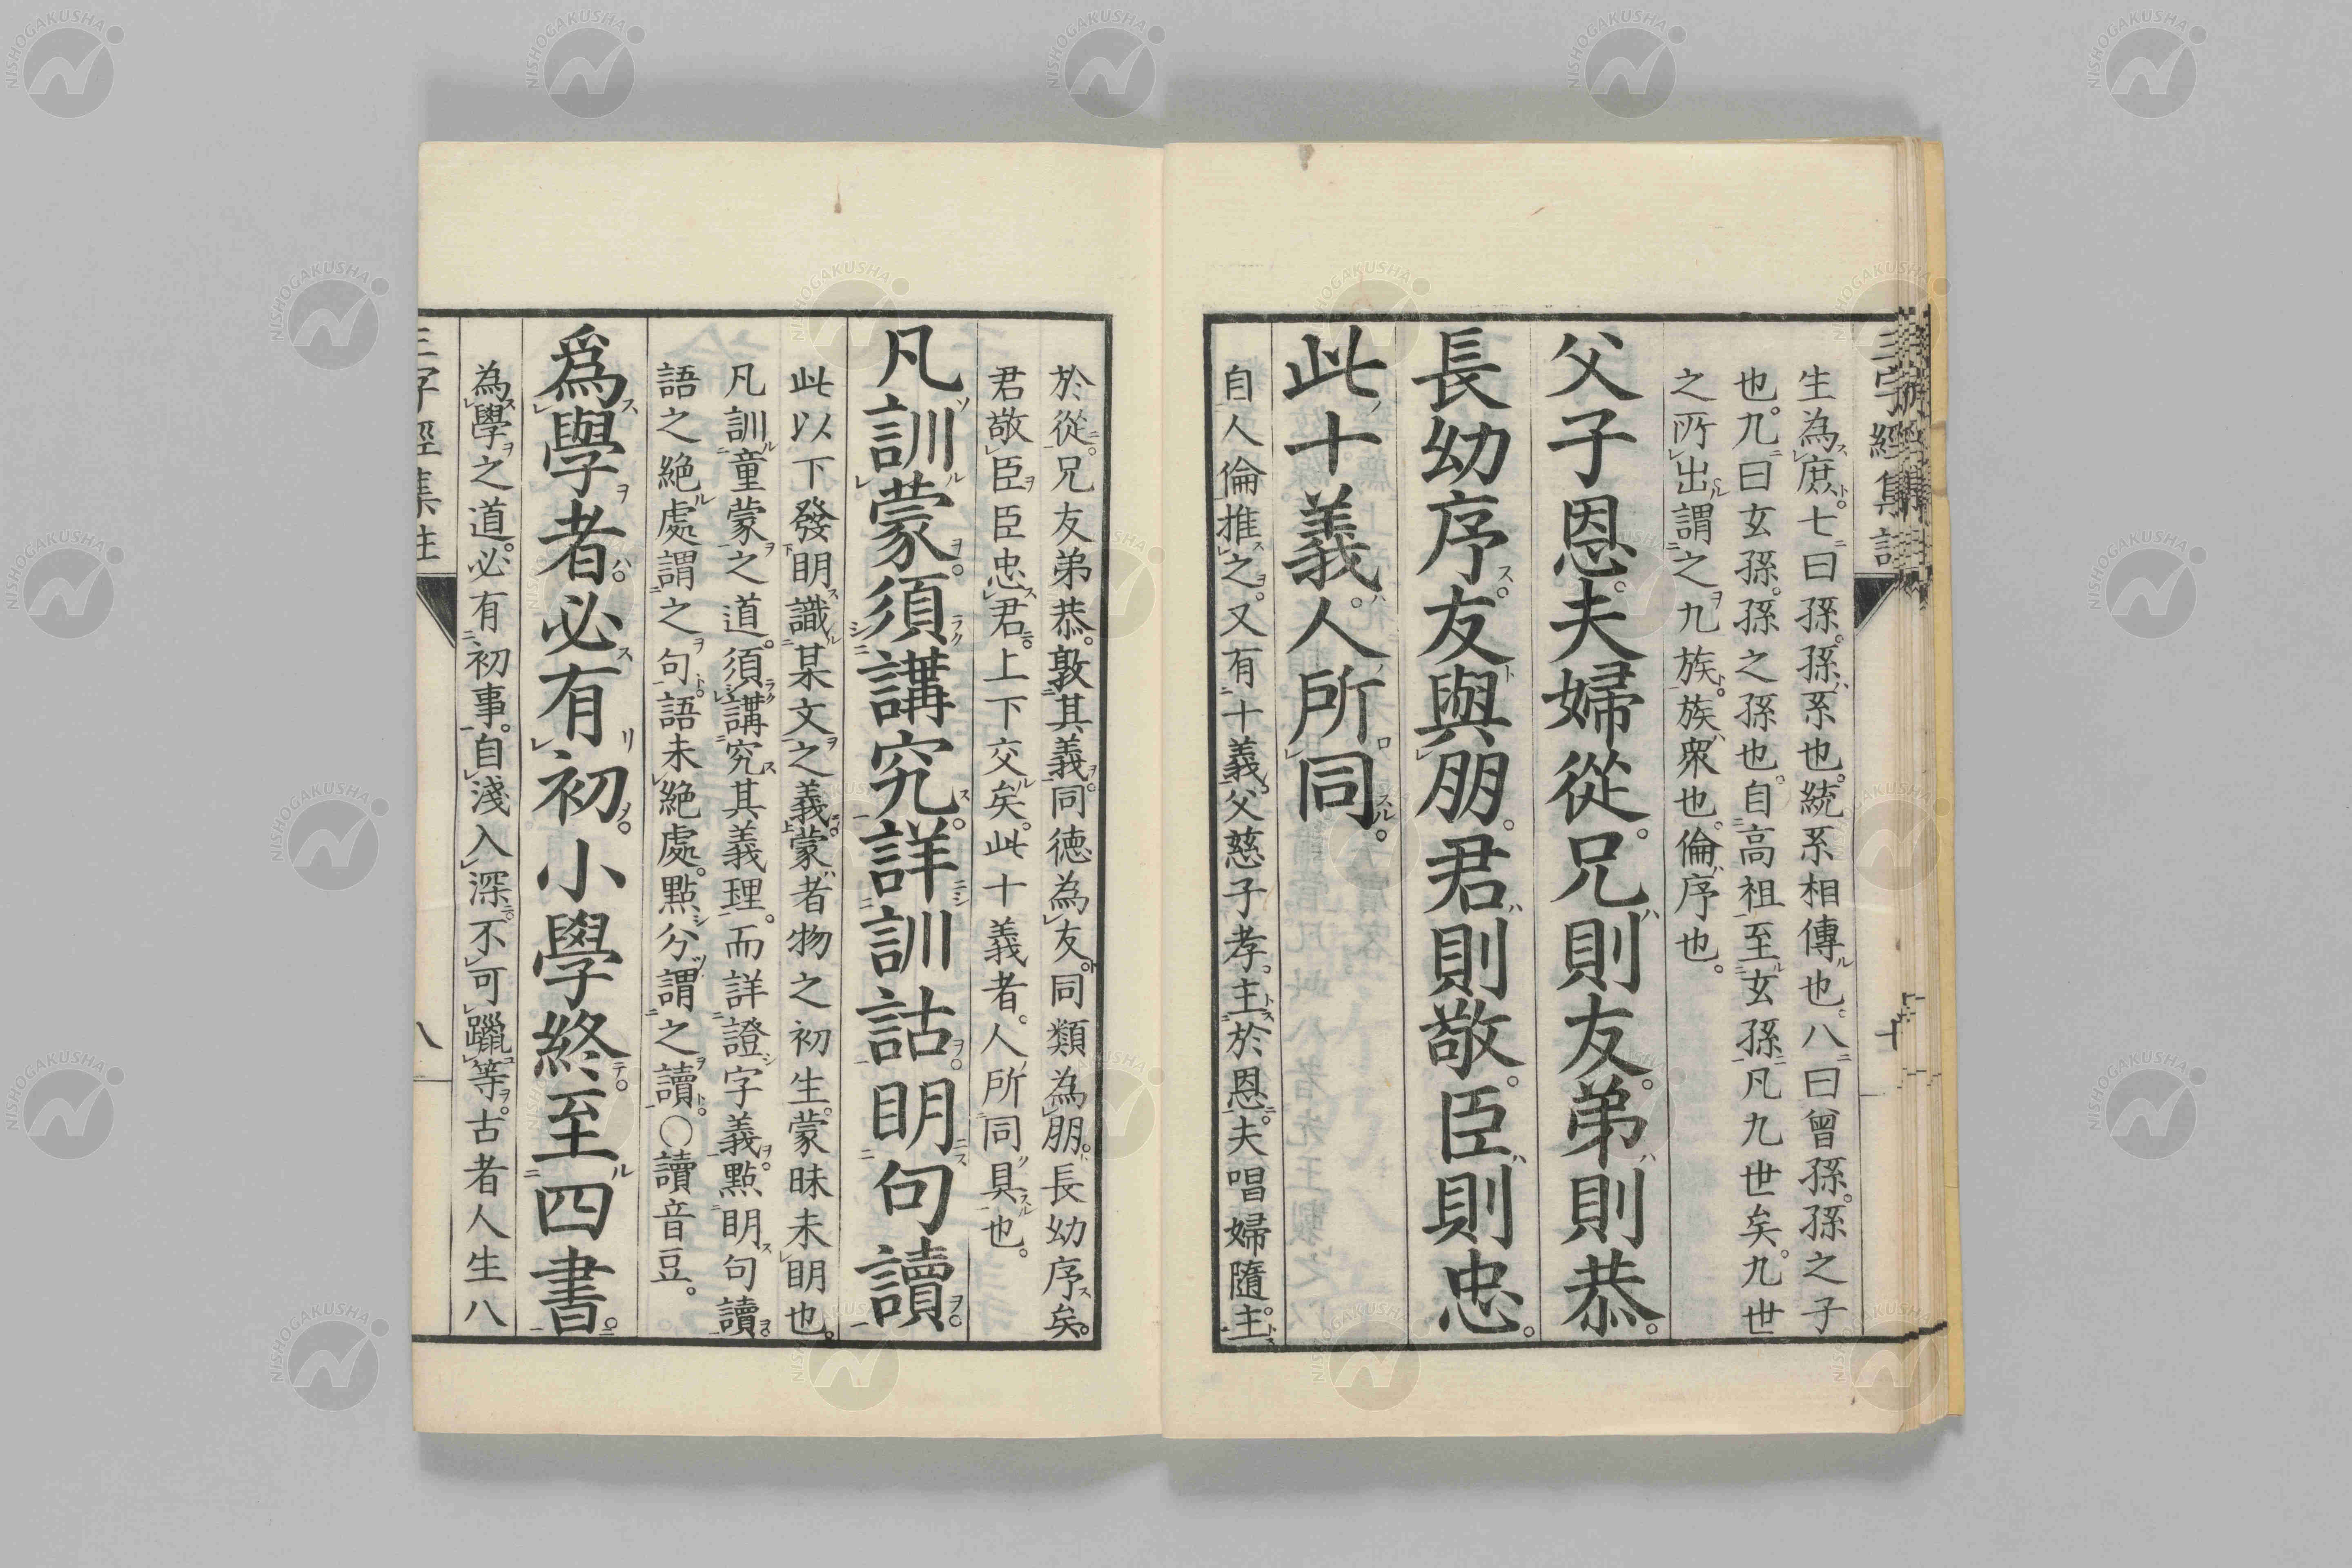 生為庶。七曰孫。孫系也。統系相傳也。八曰曾孫。孫之子
也。九曰玄孫。孫之孫也。自高祖至玄孫。凡九世矣。九世
之所出謂之九族。族衆也。倫序也。
父子恩。夫婦從。兄則友。弟則恭。
長幼序。友與朋。君則敬。臣則忠。
此十義。人所同。
自人倫推之。又有十義。父慈子孝。主於恩。夫唱婦隨。主
於從。兄友弟恭。敦其義。同德為友。同類為朋。長幼序矣。
君敬臣。臣忠君。上下交矣。此十義者。人所同具也。
凡訓蒙。須講究。詳訓詁。明句讀。
此以下發明識某文之義。蒙者物之初生。蒙昧未明也。
凡訓童蒙之道。須講究其義理。而詳證字義。點明句讀。
語之絕處謂之句。語未絕處。點分謂之讀。〇讀音豆。
爲學者。必有初。小學終。至四書。
為學之道。必有初事。自淺入深。不可躐等。古者人生八
三字經集註
八
NISHOGAKUSHA